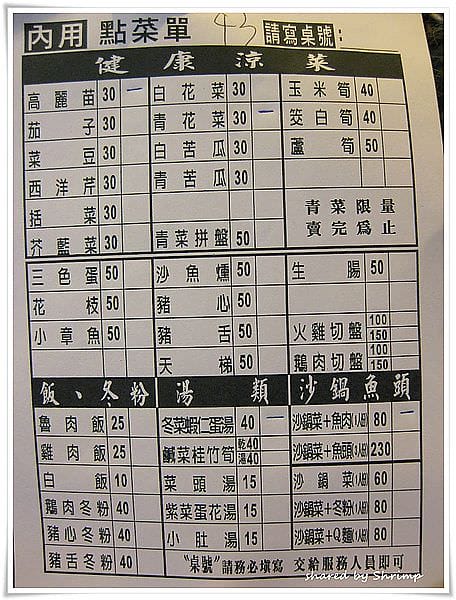 內用 點菜單 43 請寫桌號:
健康涼菜
高麗苗 30 一 白花菜 30 玉米筍 40
茄子 30 青花菜 30 一 筊白筍 40
菜豆 30 白苦瓜 30 蘆筍 50
西洋芹 30 青苦瓜 30
括菜 30 青菜限量
芥藍菜 30 青菜拼盤 50 賣完為止
三色蛋 50 沙魚燻 50 生腸 50
花枝 50 豬心 50
小章魚 50 豬舌 50 火雞切盤 100 150
天梯 50 鵝肉切盤 100 150
飯、冬粉 湯類 沙鍋魚頭
魯肉飯 25 冬菜蝦仁蛋湯 40 一 沙鍋菜+魚肉(1人份) 80 一
雞肉飯 25 鹹菜桂竹筍 乾40 湯40 沙鍋菜+魚頭(1人份) 230
白飯 10 菜頭湯 15 沙鍋菜(1人份) 60
鵝肉冬粉 40 紫菜蛋花湯 15 沙鍋菜+冬粉(1人份) 80
豬心冬粉 40 小肚湯 15 沙鍋菜+Q麵(1人份) 80
豬舌冬粉 40 "桌號"請務必填寫 交給服務人員即可
shared by Shrimp